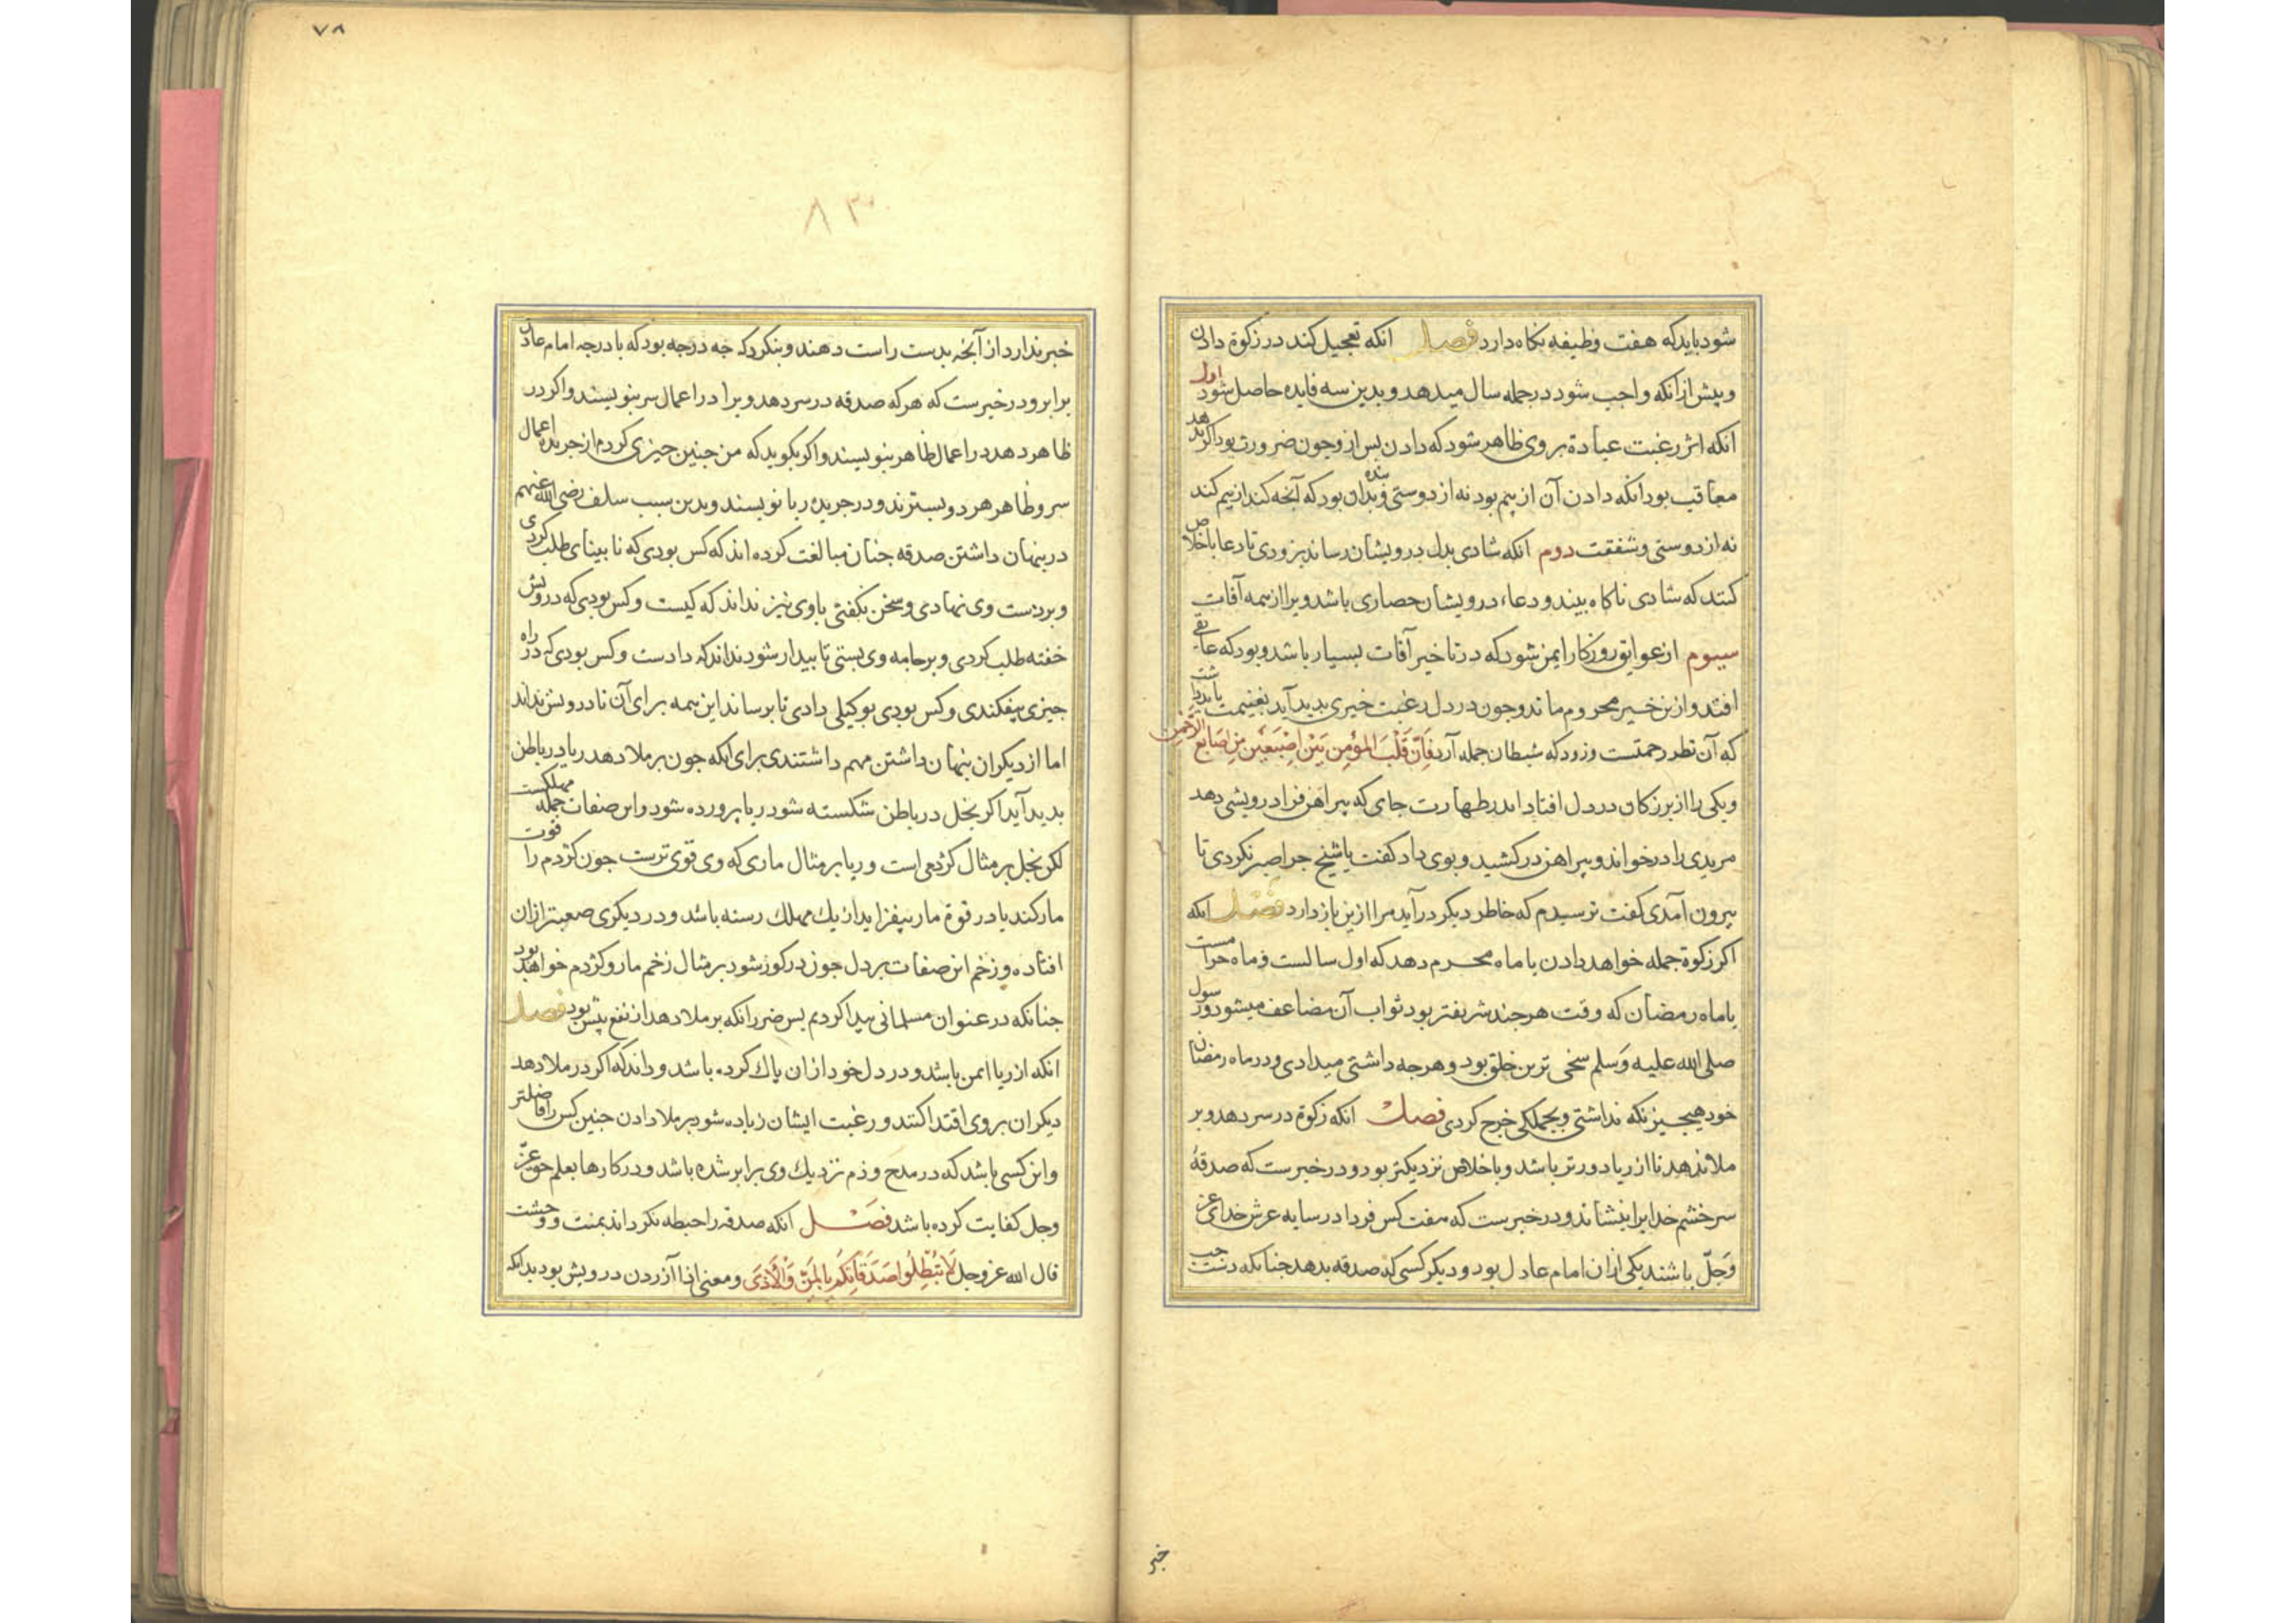 شود باید که هفت وظیفه نکاه دارد فصل انکه تعجیل کند در زکوة دادن
وبیش از انکه واجب شود در جمله سال میدهد و بدین سه فایده حاصل شود اول
انکه اثر رغبت عبادة بر وی ظاهر شود که دادن بس از وجون ضرورت بود اکر ندهد
معاقب بود انکه دادن آن از بیم بود نه از دوستی و بنده آن بود که آنجه کند از بیم کند
نه از دوستی و شفقت دوم انکه شادی بدل درویشان رساند بزودی تا دعا باخلاص
کنند که شادی ناکاه بیند و دعاء درویشان حصاری باشد ویرا از همه آفات
سیوم از عوایق روزکار ایمن شود که در تاخیر آفات بسیار باشد و بود که عایقی
افتد و ازین خیر محروم ماند وجون در دل رغبت خیری بدید آید بغنیمت باید داشت
که آن نظر رحمتست و زود که شیطان حمله آرد فَاِنَّ قَلْبَ المؤمِنِ بَیْنَ اِصْبَعَیْنِ مِنْ اَصَابِعِ الرَّحْمٰنِ
ویکی را از بزرکان در دل افتاد اندر طهارت جای که پیراهن فرا درویشی دهد
مریدی را در خواند و پیراهن در کشید و بوی داد کفت یا شیخ جرا صبر نکردی تا
بیرون آمدی کفت ترسیدم که خاطر دیکر در آید مرا ازین باز دارد فصل انکه
اکر زکوة جمله خواهد دادن با ماه محرم دهد که اول سالست و ماه حرامست
یا ماه رمضان که وقت هرجند شریفتر بود ثواب آن مضاعف میشود و رسول
صلی الله علیه وسلم سخی ترین خلق بود و هرجه داشتی میدادی و در ماه رمضان
خود هیجیز نکه نداشتی و بجملکی خرج کردی فصل انکه زکوة در سر دهد و بر
ملا ندهد تا از ریا دورتر باشد و باخلاص نزدیکتر بود و در خبرست که صدقهٔ
سر خشم خدایرا بنشاند و در خبرست که هفت کس فردا در سایه عرش خدای عز
وَجَلّ باشند یکی ازان امام عادل بود و دیکر کسی که صدقه بدهد جنانکه دست جب
خبر
۷۸
۸۳
خبر ندارد از آنجه بدست راست دهند و بنکر که جه درجه بود که با درجه امام عادل
برابر و در خبرست که هر که صدقه در سر دهد ویرا در اعمال سر بنویسند و اکر در
ظاهر دهد در اعمال ظاهر بنویسند و اکر بکوید که من جنین جیزی کردم از جریده اعمال
سر و ظاهر هر دو بسترند و در جریده ریا نویسند و بدین سبب سلف رضی الله عنهم
در بنهان داشتن صدقه جنان مبالغت کرده اند که کس بودی که نابینای طلب کردی
و بر دست وی نهادی و سخن نکفتی با وی نیز نداند که کیست و کس بودی که درویش
خفته طلب کردی و بر جامه وی بستی تا بیدار شود نداند که دادست و کس بودی که در راه
جیزی بیفکندی و کس بودی بوکیلی دادی تا برساند این همه برای آن تا درویش نداند
اما از دیکران بنهان داشتن مهم داشتندی برای انکه جون بر ملا دهد ریا در باطن
بدید آید اکر بخل در باطن شکسته شود ریا پرورده شود و این صفات جمله مهلکست
لکن بخل بر مثال کژدمی است و ریا بر مثال ماری که وی قوی ترست جون کژدم را قوت
مار کند یا در قوة مار بیفزاید از یك مهلك رسته باشد و در دیکری صعبتر ازان
افتاده و زخم این صفات بر دل جون در کور شود بر مثال زخم مار و کژدم خواهد بود
جنانکه در عنوان مسلمانی پیدا کردیم بس ضرر انکه بر ملا دهد از نفع بیش بود فصل
انکه از ریا ایمن باشد و در دل خود ازان پاك کرده باشد و داند که اکر در ملا دهد
دیکران بر وی اقتدا کنند و رغبت ایشان زیاده شود بر ملا دادن جنین کس را فاضلتر
و این کسی باشد که در مدح و ذم نزدیك وی برابر شده باشد و در کارها بعلم حق عزّ
وجل کفایت کرده باشد فصل انکه صدقه را حبطه نکرداند بمنت و وحشت
قال الله عز وجل لَا تُبْطِلُوا صَدَقَاتِکُم بِالْمَنِّ وَالْأَذَی و معنی اذا آزردن درویش بود بدانکه